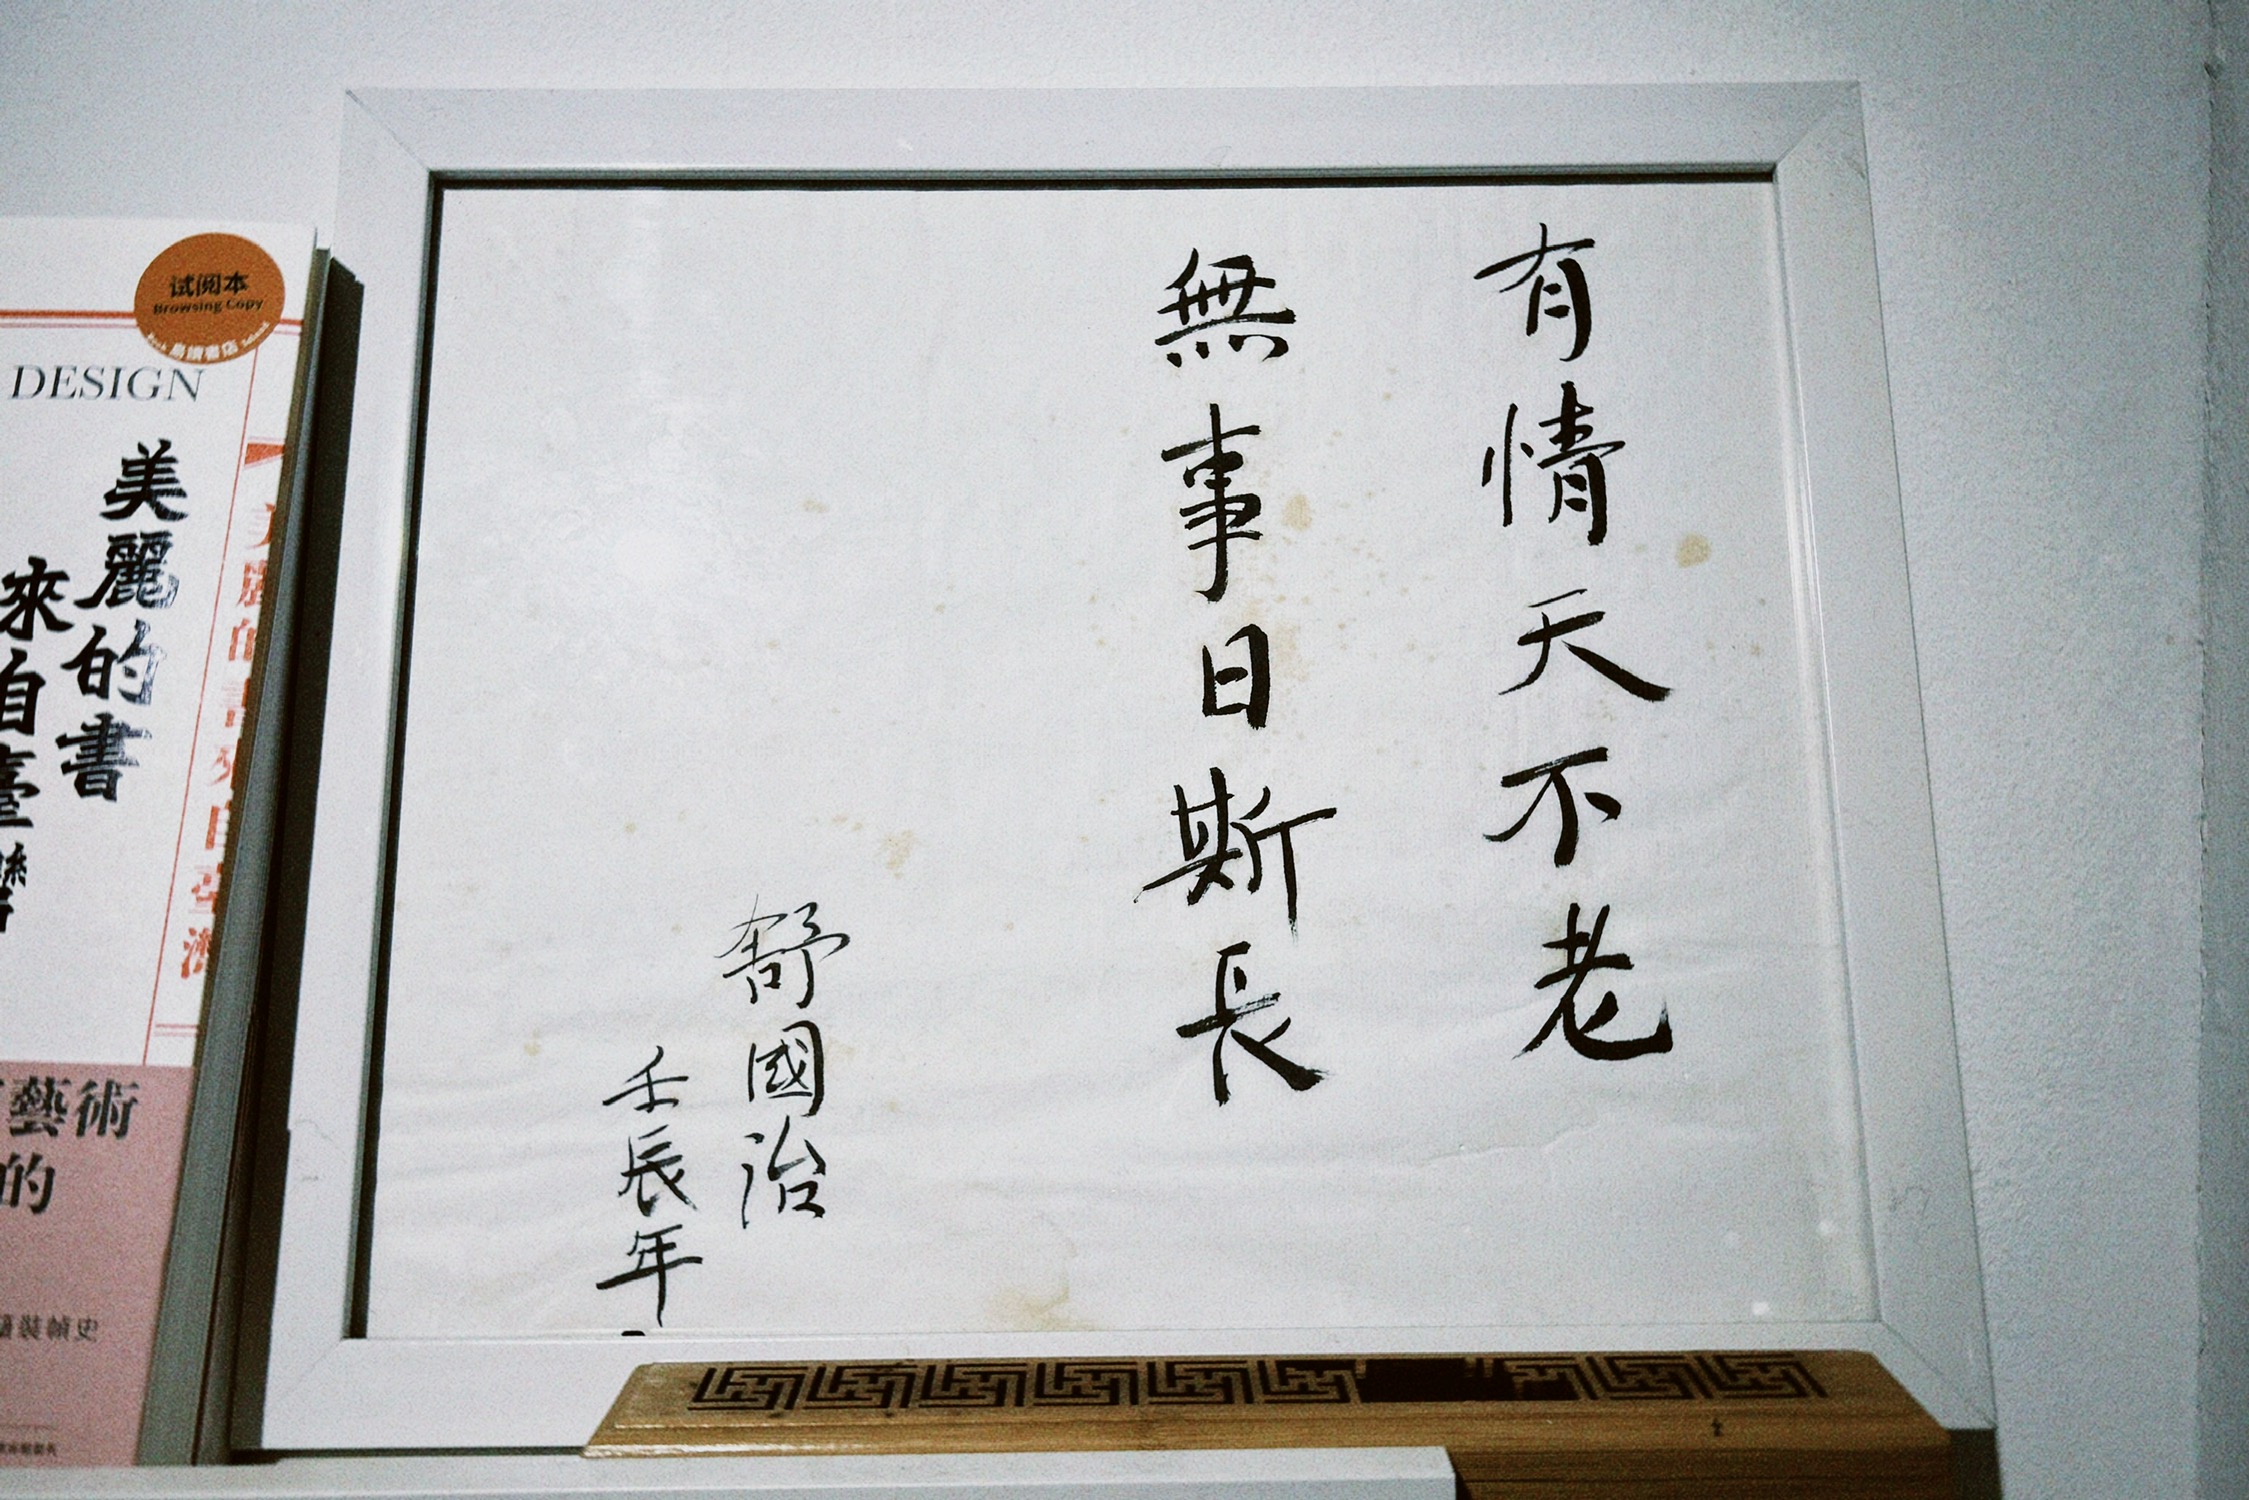 有情天不老
無事日斯長
舒國治
壬辰年
试阅本
Browsing Copy
DESIGN
美麗的書
來自臺灣
藝術
的
裝幀史